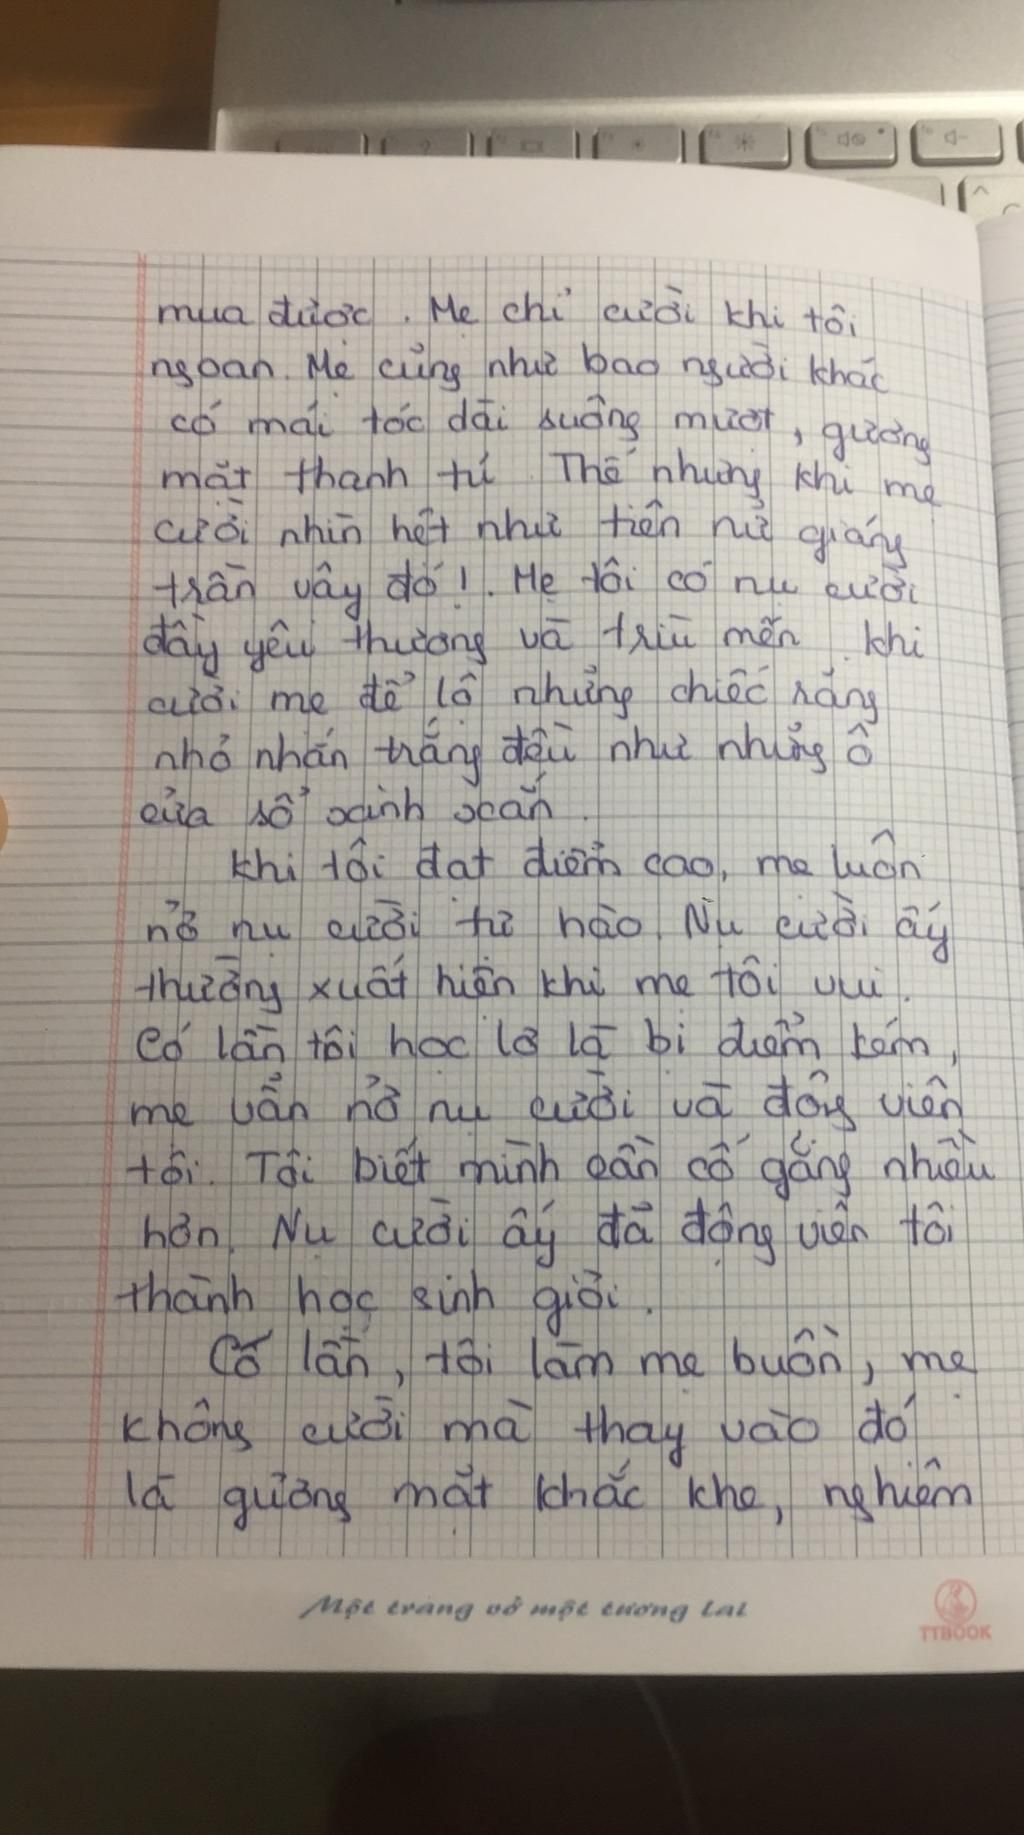 mua được. Mẹ chỉ cười khi tôi
ngoan. Mẹ cũng như bao người khác
có mái tóc dài suông mượt, gương
mặt thanh tú. Thế nhưng khi mẹ
cười nhìn hệt như tiên nữ giáng
trần vậy đó!. Mẹ tôi có nụ cười
đầy yêu thương và trìu mến. khi
cười mẹ để lộ những chiếc răng
nhỏ nhắn trắng đều như những ô
cửa sổ xinh xắn.
Khi tôi đạt điểm cao, mẹ luôn
nở nụ cười tự hào. Nụ cười ấy
thường xuất hiện khi mẹ tôi vui.
Có lần tôi học lơ là bị điểm kém,
mẹ vẫn nở nụ cười và động viên
tôi. Tôi biết mình cần cố gắng nhiều
hơn. Nụ cười ấy đã động viên tôi
thành học sinh giỏi.
Có lần, tôi làm mẹ buồn, mẹ
không cười mà thay vào đó
là gương mặt khắc khe, nghiêm
Một trang vở một tương lai
TTBOOK